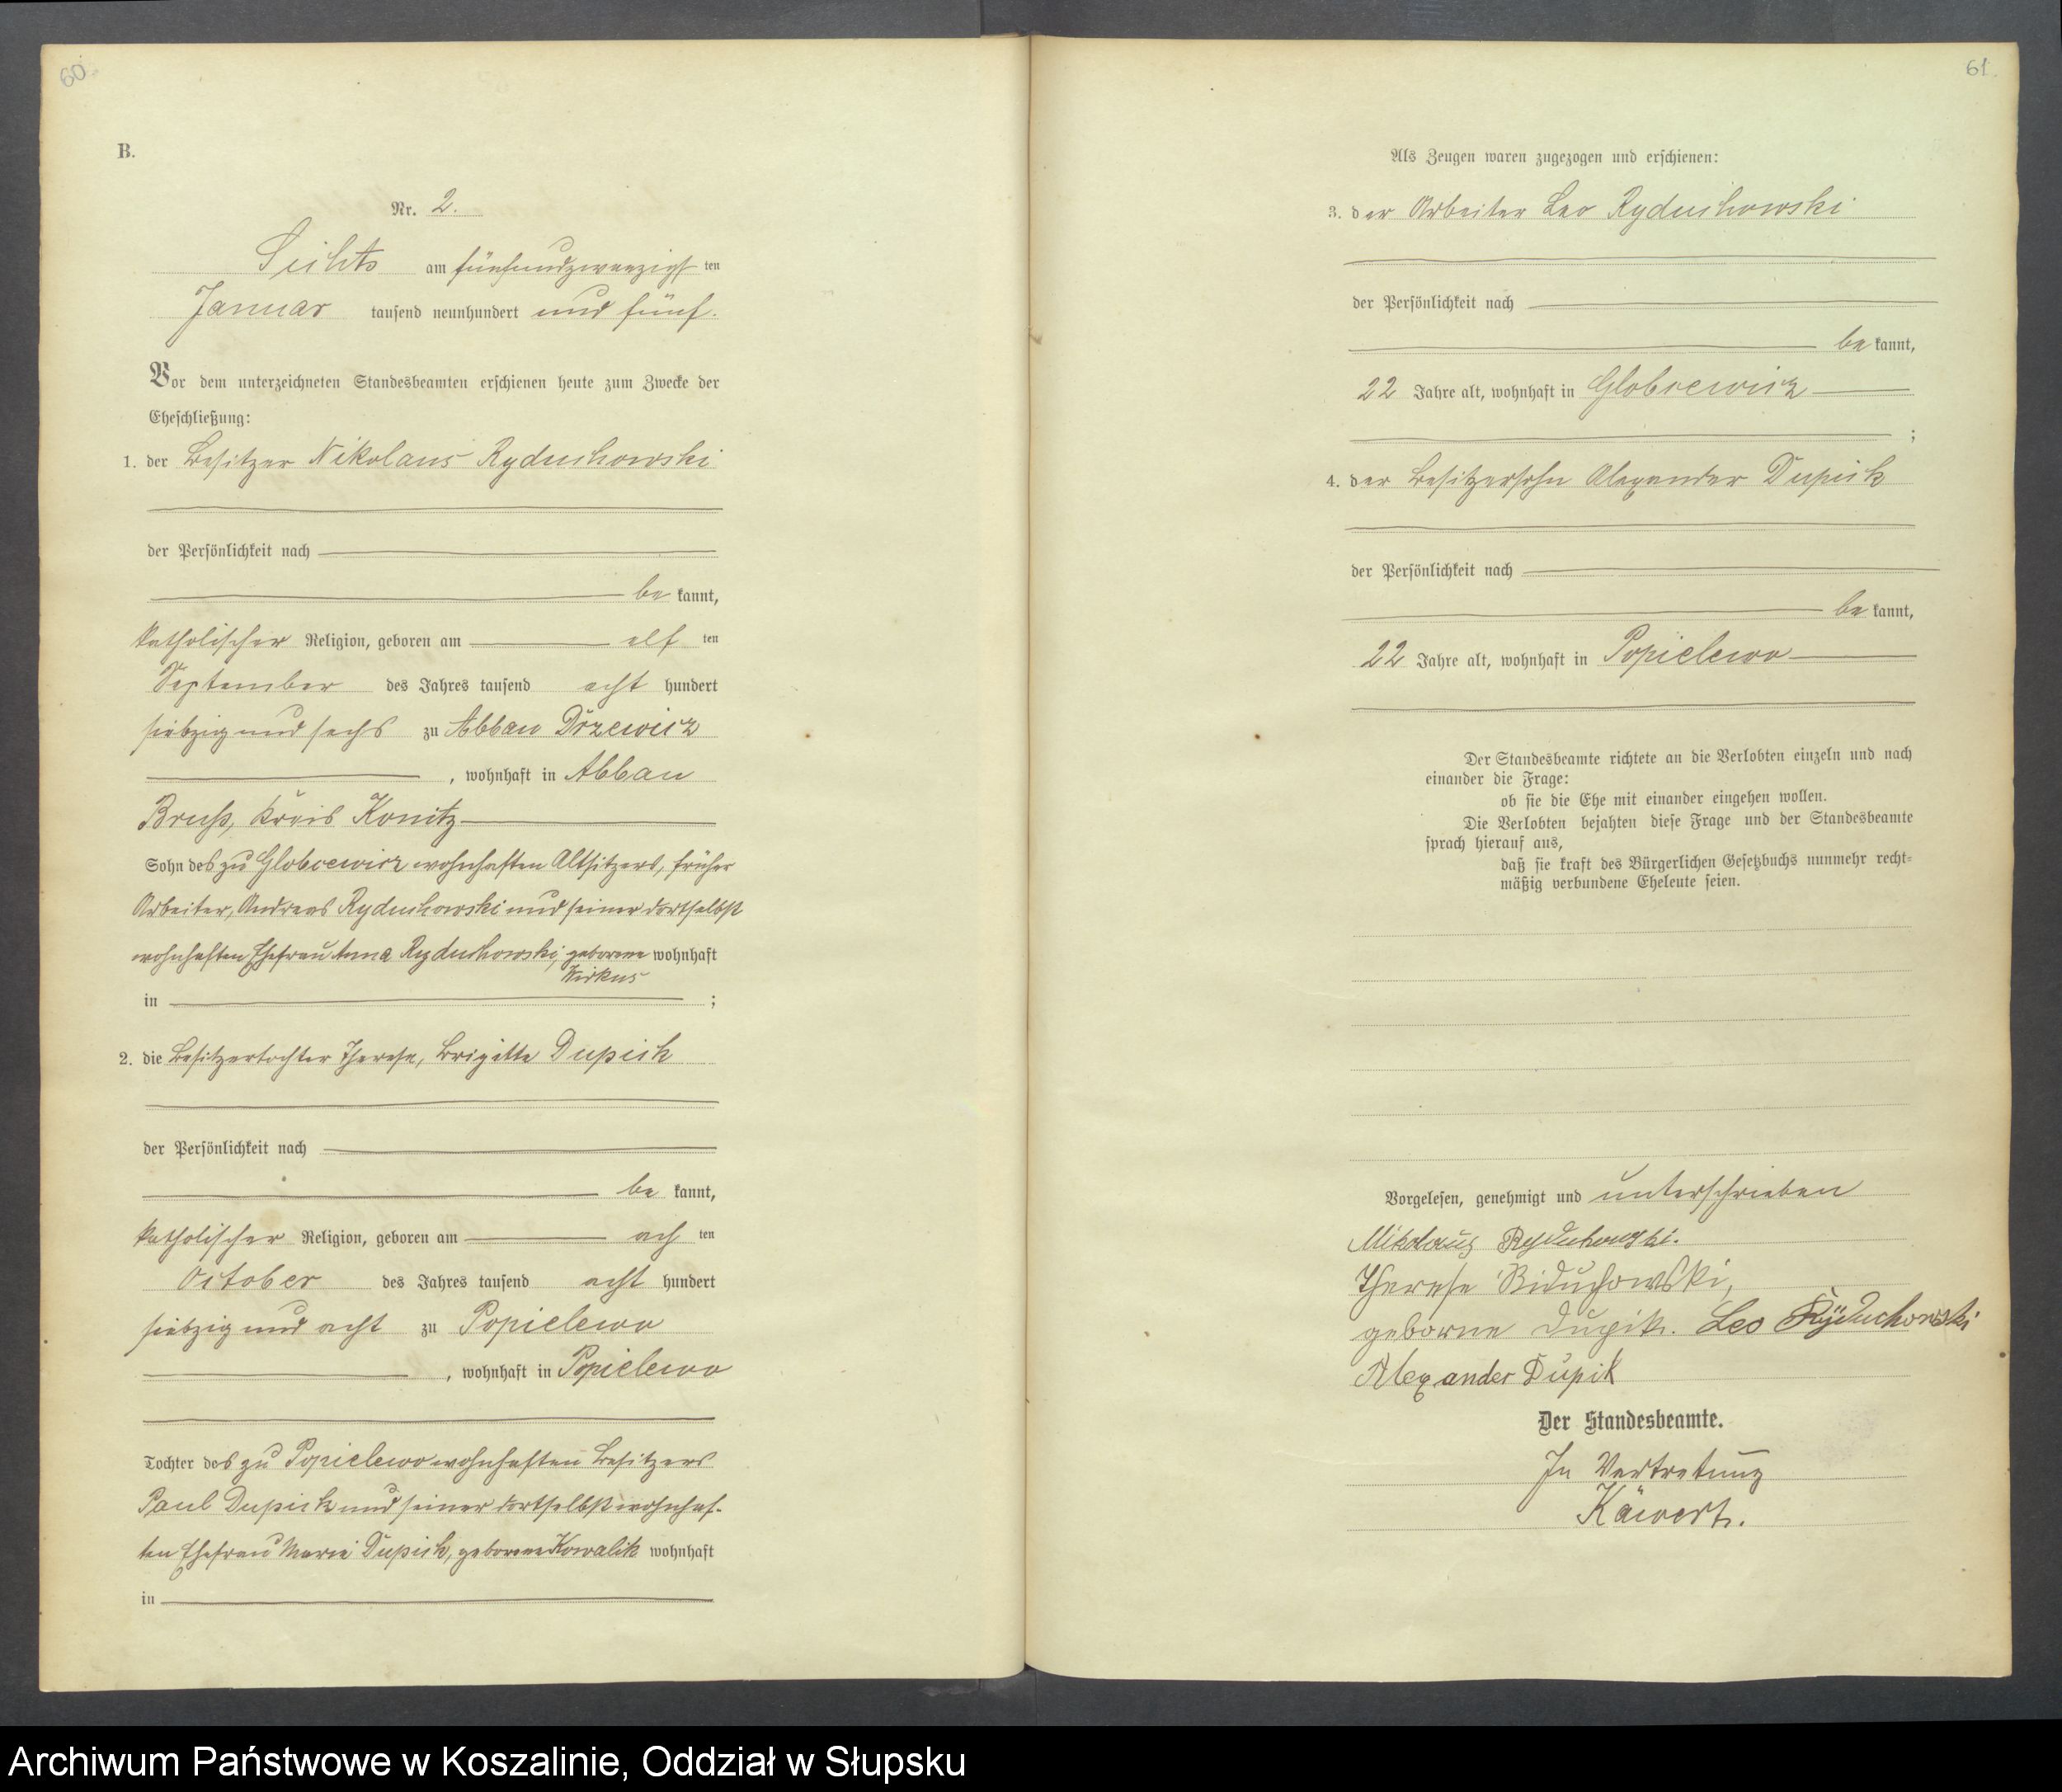 60
B.
Nr. 2.
am fünfundzwanzigst ten
Januar tausend neunhundert und fünf.
Vor dem unterzeichneten Standesbeamten erschienen heute zum Zwecke der
Eheschließung:
1. der Besitzer Nikolaus Ryduchowski
der Persönlichkeit nach
be kannt,
katholischer Religion, geboren am elf ten
September des Jahres tausend acht hundert
siebzig und sechs zu Abbau Drzewicz
, wohnhaft in Abbau
Bruß, Kreis Konitz
Sohn des zu Globcewicz wohnhaften Altsitzers, früher
Arbeiter, Andreas Ryduchowski und seiner dortselbst
wohnhaften Ehefrau Anna Ryduchowski, geborene wohnhaft
in ;
2. die Besitzertochter Therese, Brigitte Dupick
der Persönlichkeit nach
be kannt,
katholischer Religion, geboren am ach ten
October des Jahres tausend acht hundert
siebzig und acht zu Popielewo
, wohnhaft in Popielewo
Tochter des zu Popielewo wohnhaften Besitzers
Paul Dupick und seiner dortselbst wohnhaf-
ten Ehefrau Marie Dupick, geborene Kowalik wohnhaft
in
61
Als Zeugen waren zugezogen und erschienen:
3. der Arbeiter Leo Ryduchowski
der Persönlichkeit nach
be kannt,
22 Jahre alt, wohnhaft in Globcewicz
;
4. der Besitzersohn Alexander Dupick
der Persönlichkeit nach
be kannt,
22 Jahre alt, wohnhaft in Popielewo
Der Standesbeamte richtete an die Verlobten einzeln und nach
einander die Frage:
ob sie die Ehe mit einander eingehen wollen.
Die Verlobten bejahten diese Frage und der Standesbeamte
sprach hierauf aus,
daß sie kraft des Bürgerlichen Gesetzbuchs nunmehr recht=
mäßig verbundene Eheleute seien.
Vorgelesen, genehmigt und unterschrieben
Mikolaus Ryduchowski.
Therese Riduchowski,
geborne Dupik. Leo Ryduchowski
Alexander Dupik
Der Standesbeamte.
In Vertretung
Archiwum Państwowe w Koszalinie, Oddział w Słupsku